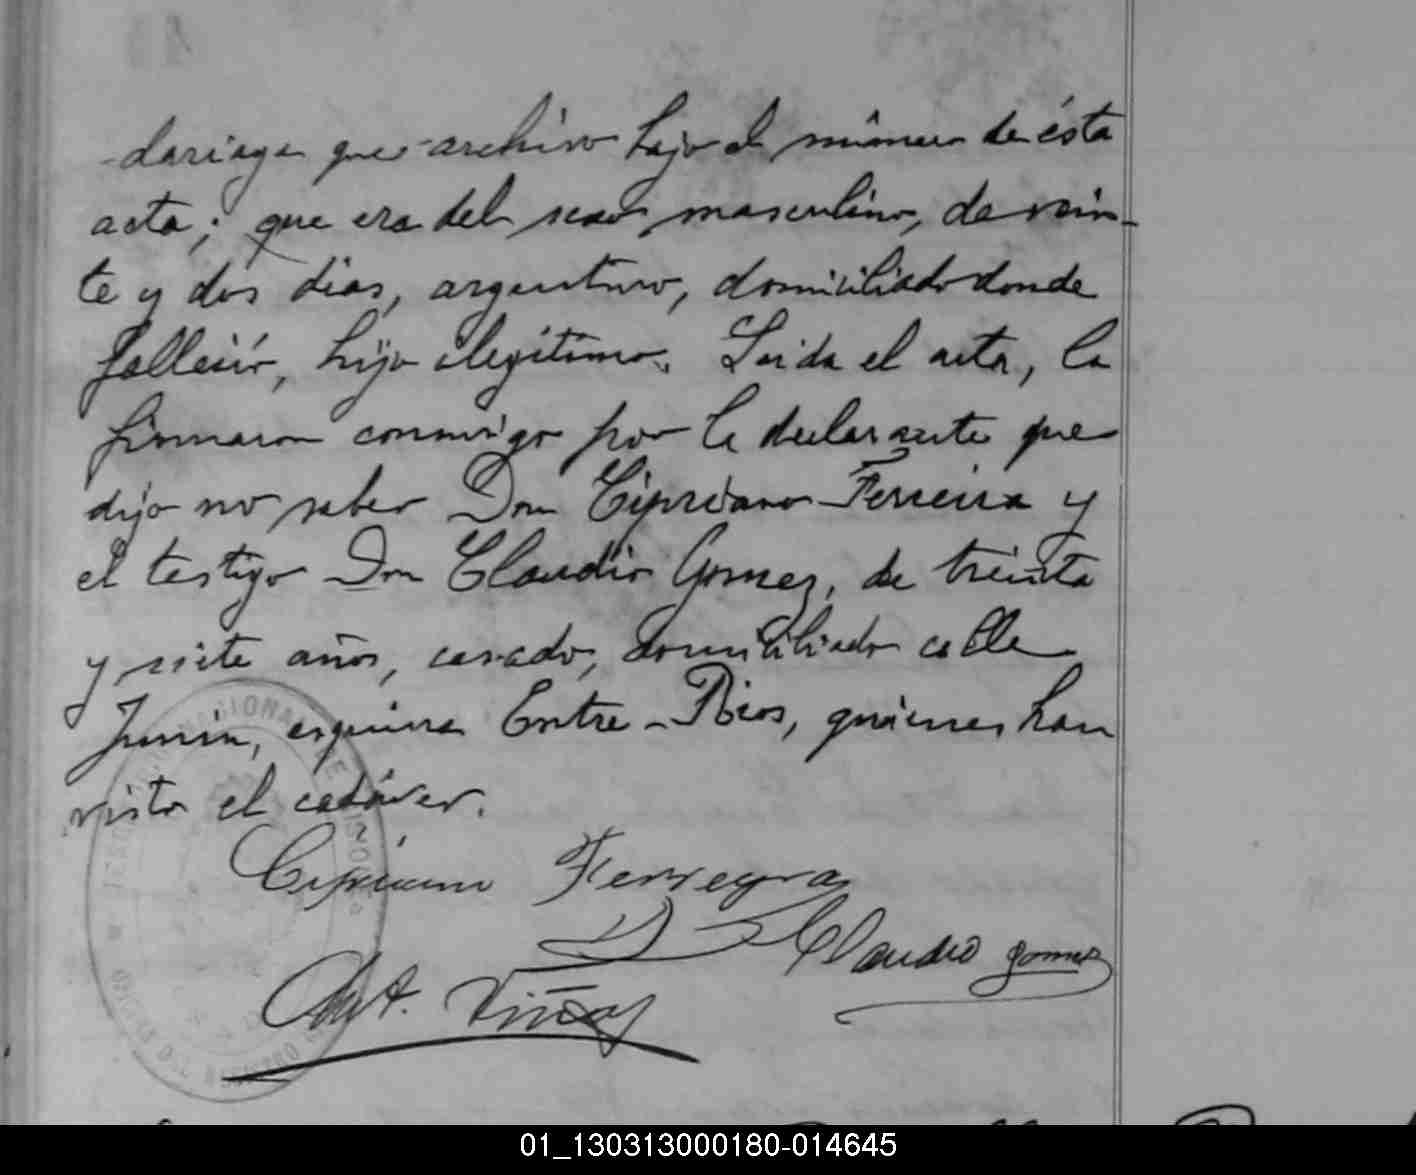 -dariaga que archivo bajo el número de ésta
acta; que era del sexo masculino, de vein-
te y dos dias, argentino, domiciliado donde
falleció, hijo ilegítimo. Leida el acta, la
firmaron conmigo por la declarante que
dijo no saber Don Cipriano Ferreira y
el testigo Don Claudio Gomez, de treinta
y siete años, casado, domiciliado calle
Junin, esquina Entre-Rios, quienes han
visto el cadáver.
Cipriano Ferreyra
Claudio gomez
Ant. Viñas
01_130313000180-014645